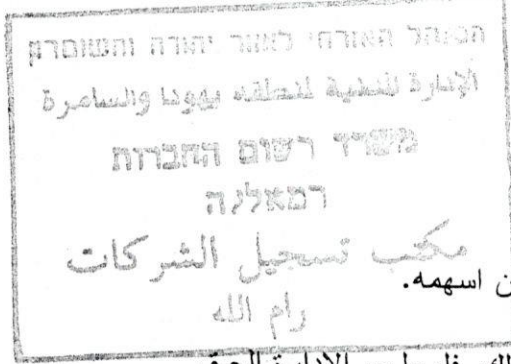 המנהל האזרחי לאזור יהודה והשומרון
الإدارة المدنية لمنطقة يهودا والسامرة
משרד רשום החברות
רמאללה
مكتب تسجيل الشركات
رام الله
ن اسهمه.